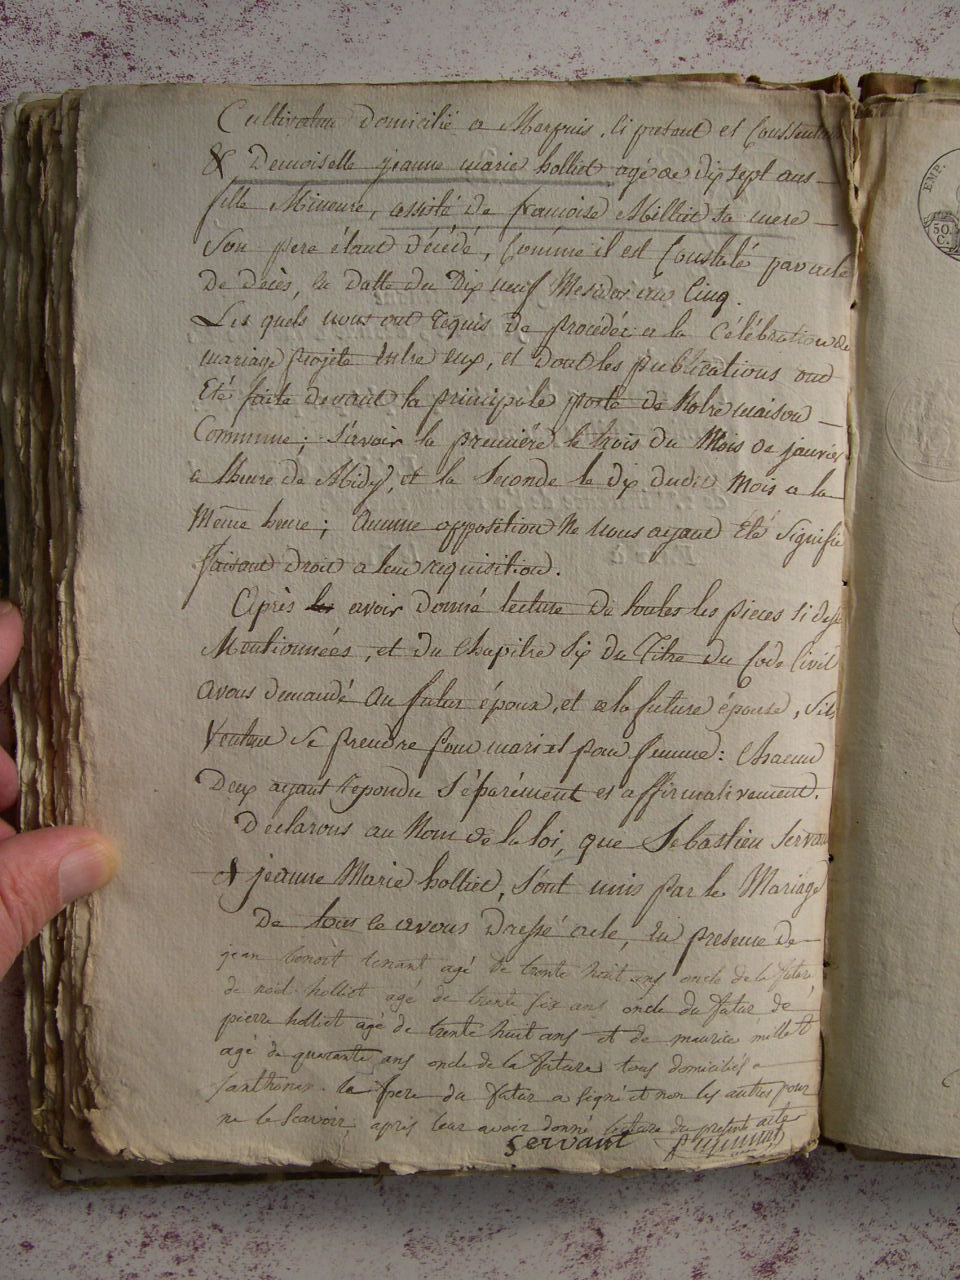 Cultivateur domicilié a Marpuis, si present et Consentent
& Demoiselle jeanne marie holliet agé de dix sept ans
fille Mineure, assisté de francoise Milliet sa mere
Son pere étant décédé, Comme il est Constaté par acte
de décès, en datte du Dix neuf Messidor an Cinq.
Les quels nous ont requis de procédér a la Célébration du
mariage projeté Entre eux, et dont les publications ont
Eté faite devant la principale porte de Notre maison
Commune; sçavoir la première le trois du Mois de janvier
a lheure de Midy, et la Seconde le dix dudit Mois a la
Même heure; Aucune opposition ne nous ayant Eté signifié
faisant droit a leur requisition.
Après avoir donné lecture de toutes les pieces si dessu
Mentionnées, et du Chapitre Six du Titre du Code Civil
avons demandé au futur époux, et a la future épouse, s'ils
Veulent Se prendre pour mari et pour femme: Chacun
Deux ayant repondu séparément et affirmativement.
Declarons au Nom de la loi, que Sebastien Servant
& jeanne Marie holliet, sont unis par le Mariage
De tous ce avons Dressé acte, En presence de
jean benoit tenant agé de trente huit ans oncle de la future
de noël holliet agé de trente six ans oncle du futur de
pierre holliet agé de trente huit ans et de maurice milliet
agé de quarante ans oncle de la future tous domiciliés a
santhonin le pere du futur a signé et non les autres pour
ne le Scavoir, apres leur avoir donné lecture du présente acte
servant